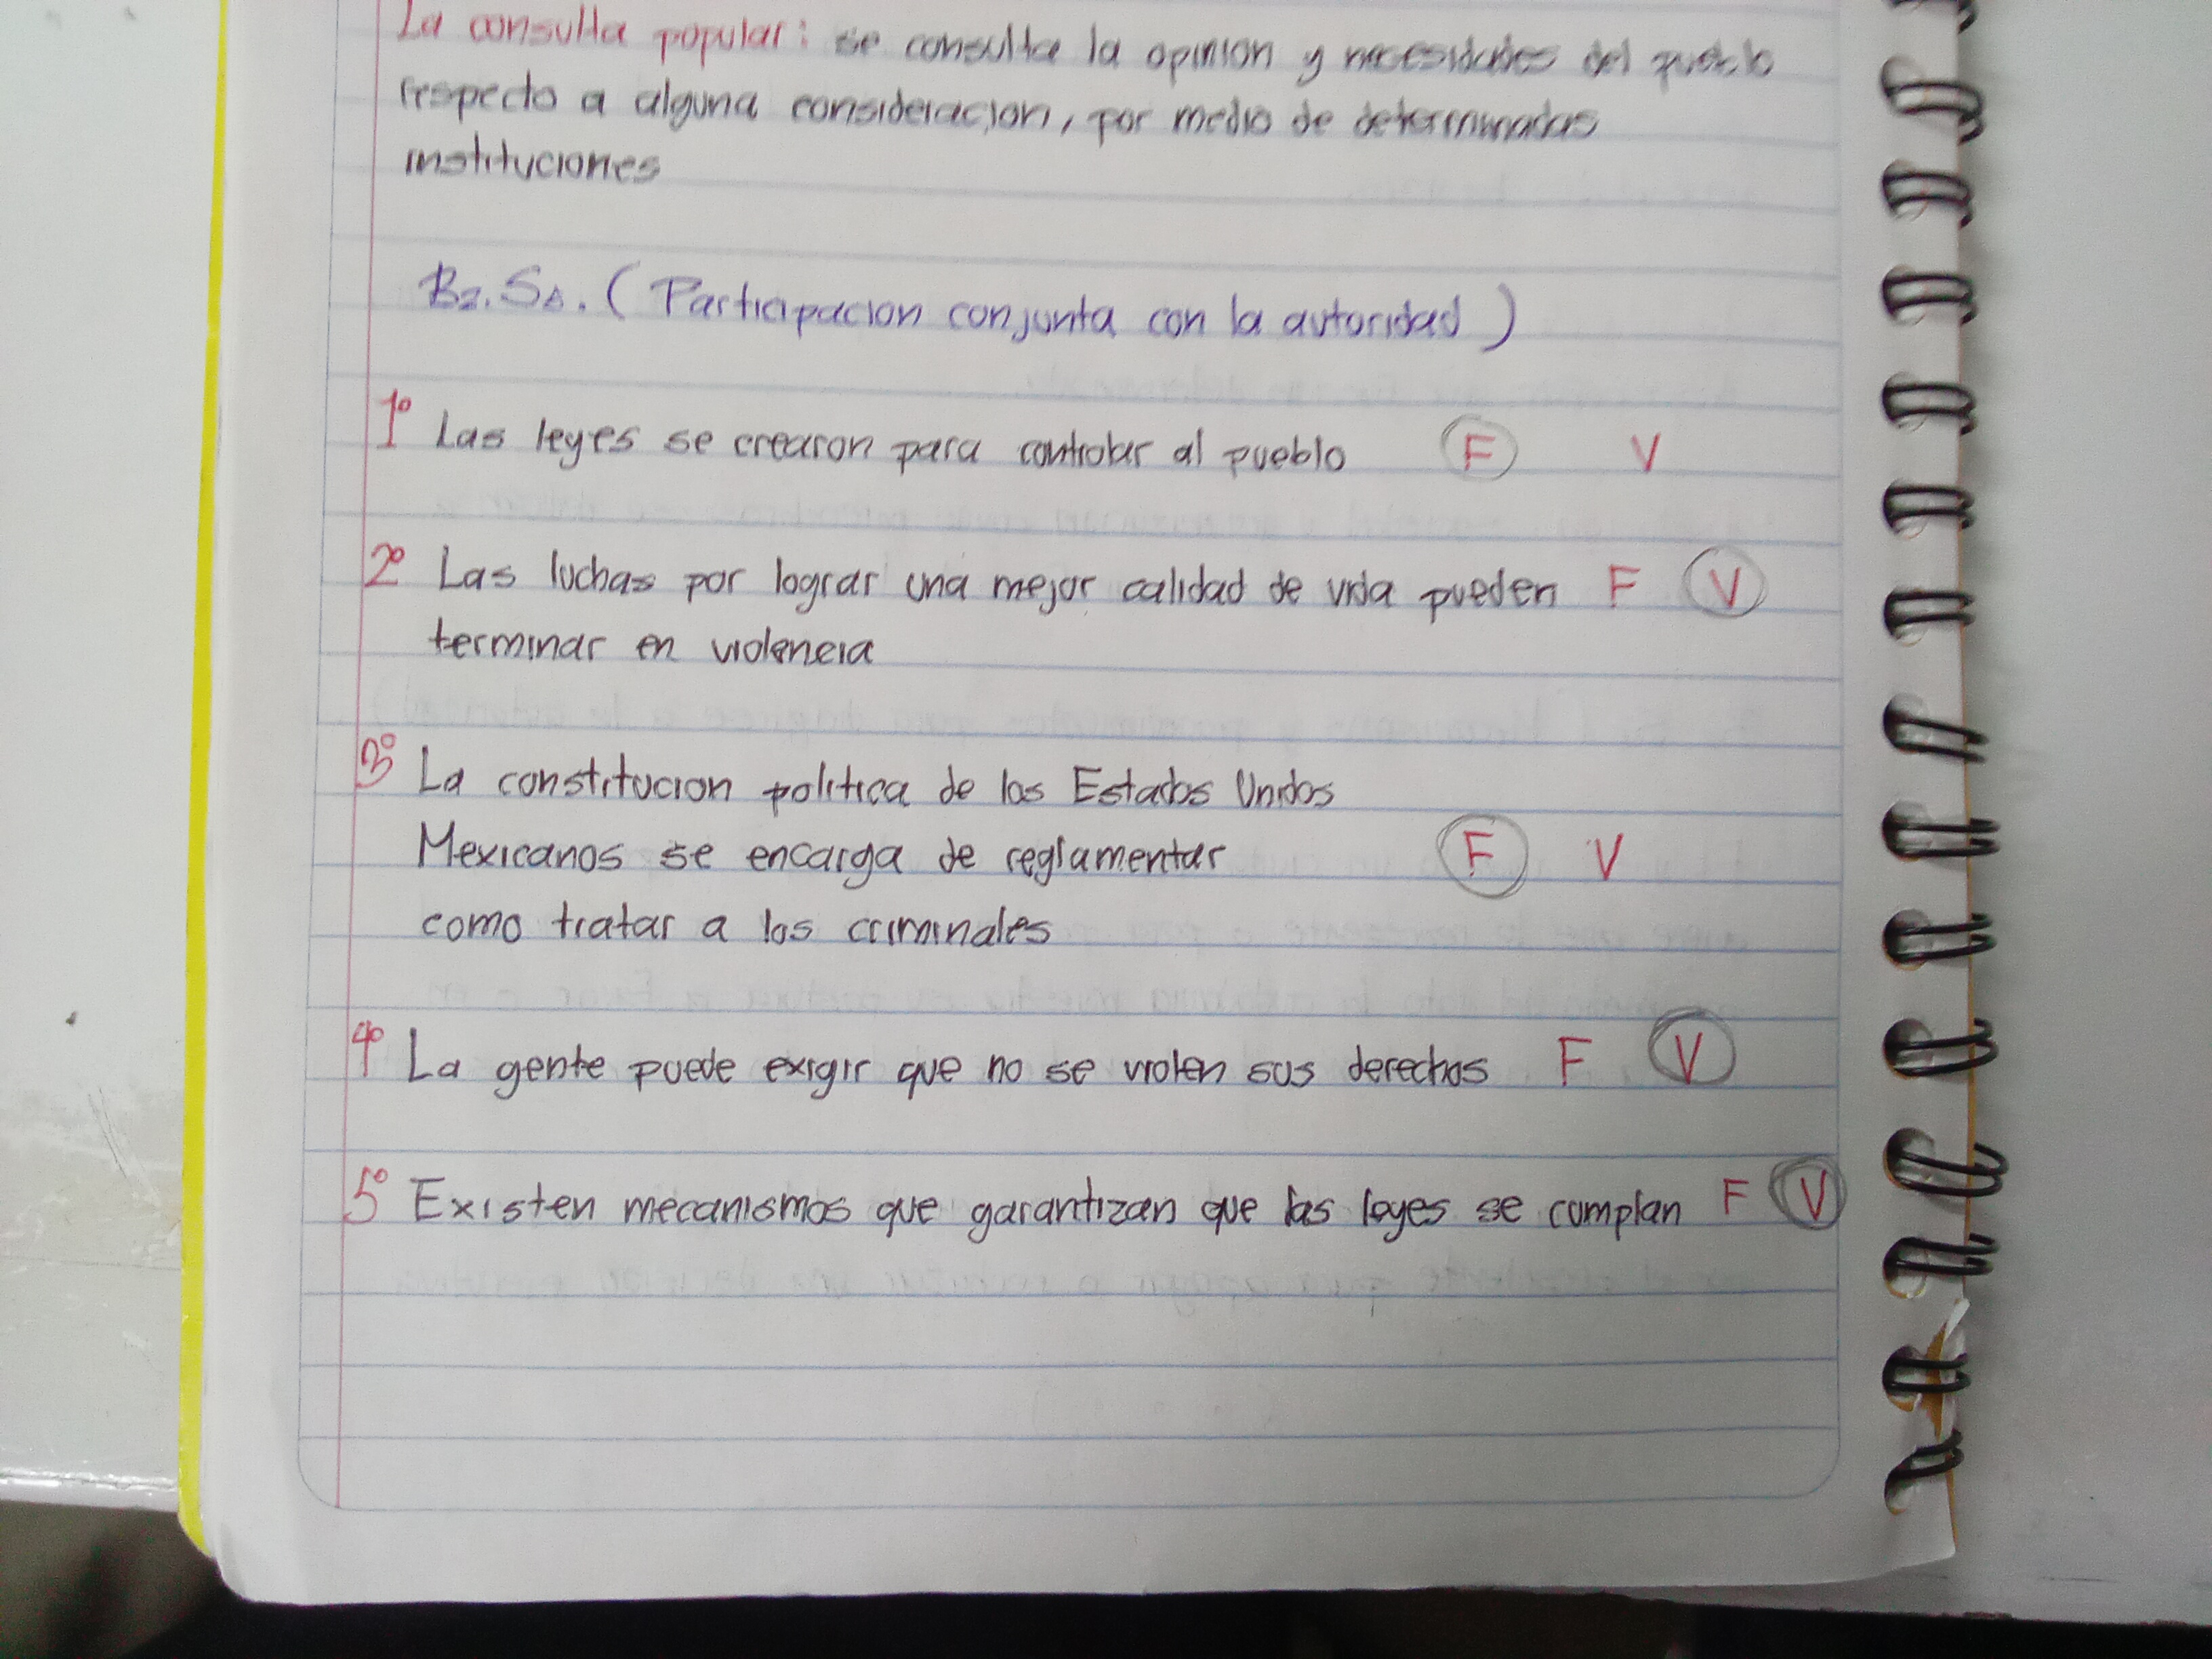 La consulta popular: se consulta la opinion y necesidades del pueblo
respecto a alguna consideracion, por medio de determinadas
instituciones
B2. S6. (Participacion conjunta con la autoridad)
1° Las leyes se crearon para controlar al pueblo F V
2° Las luchas por lograr una mejor calidad de vida pueden F V
terminar en violencia
3° La constitucion politica de los Estados Unidos
Mexicanos se encarga de reglamentar F V
como tratar a los criminales
4° La gente puede exigir que no se violen sus derechos F V
5° Existen mecanismos que garantizan que las leyes se cumplan F V